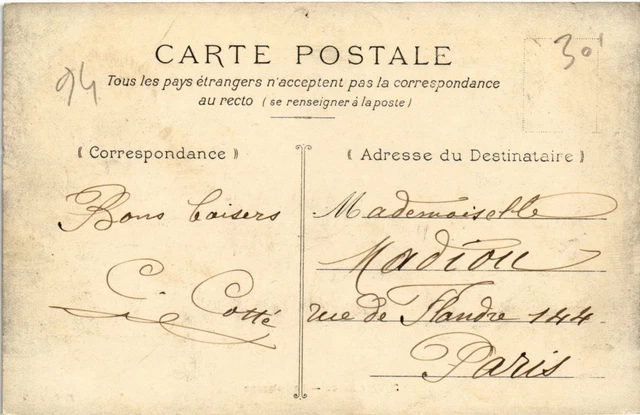 CARTE POSTALE
Tous les pays étrangers n'acceptent pas la correspondance
au recto (se renseigner à la poste)
94
30
(Correspondance)
Bons baisers
C. Cotté
(Adresse du Destinataire)
Mademoiselle
Madiou
rue de Flandre 144
Paris